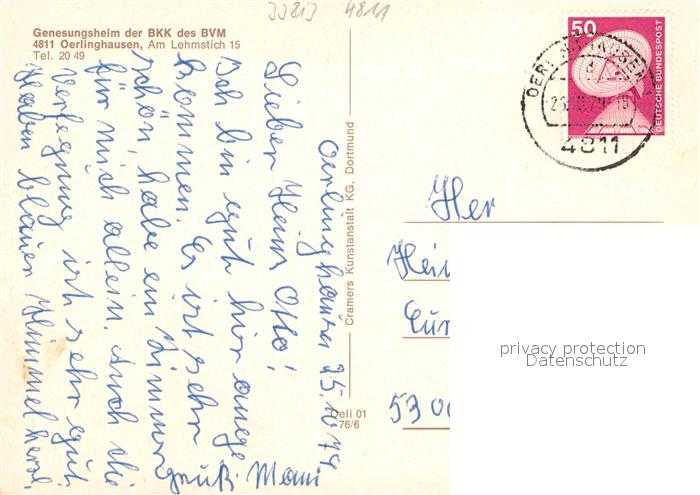 33813 4811
Genesungsheim der BKK des BVM
4811 Oerlinghausen, Am Lehmstich 15
Tel. 20 49
Oerlinghausen 25.10.79
Lieber Heinz Otto!
Ich bin gut hier ange
kommen. Es ist sehr
schön, habe ein Zimmer
für mich allein. Auch die
Verfegnung ist sehr gut.
Haben blauen Himmel herzl.
gruß. Mami
Cramers Kunstanstalt KG, Dortmund
Deli 01
76/6
50
DEUTSCHE BUNDESPOST
OERLINGHAUSEN
4811
Her
Hei
Cur
5300
privacy protection
Datenschutz